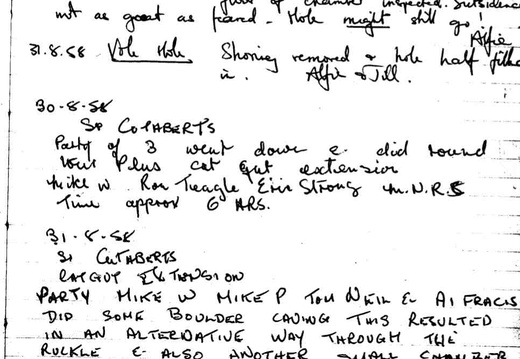 not as great as feared - Hole might still go!
Alfie
31.8.58 Vole Hole. Shoring removed & hole half fille
in. Alfie & Jill.
30-8-58
St CUTHBERTS
Party of 3 went down & did round
tour Plus cat gut extension
Mike W Ron Teagle Eric Strong M.N.R.C
Time approx 6 HRS.
31-8-58
St CUTHBERTS
CATGUT EXTENSION
PARTY MIKE W MIKE P TOM NEIL & A1 FRACIS
DID SOME BOULDER CAVING THIS RESULTED
IN AN ALTERNATIVE WAY THROUGH THE
RUCKLE & ALSO ANOTHER SMALL CHAMBER